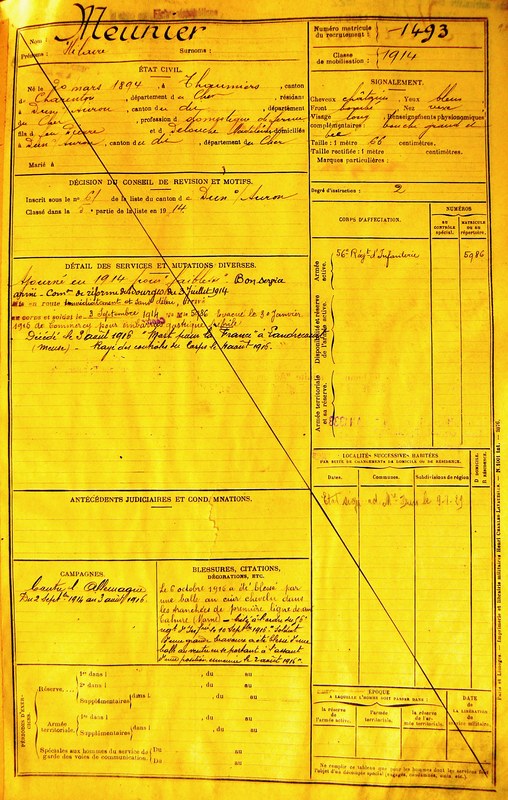 Nom : Meunier
Prénoms : Hilaire Surnoms :
Numéro matricule du recrutement : 1493
Classe de mobilisation : 1914
ÉTAT CIVIL.
Né le 20 mars 1894, à Thaumiers, canton
de Charenton, département du Cher, résidant
à Dun s/ Auron, canton de dit, département
du Cher, profession de domestique de ferme
fils de et de domiciliés
à Dun s/ Auron, canton de dit, département du Cher
Marié à
SIGNALEMENT.
Cheveux châtains Yeux bleus
Front Nez
Visage long Renseignements physionomiques
complémentaires : bouche grande
Taille : 1 mètre 66 centimètres.
Taille rectifiée : 1 mètre centimètres.
Marques particulières :
Degré d'instruction : 2
DÉCISION DU CONSEIL DE REVISION ET MOTIFS.
Inscrit sous le n° 67 de la liste du canton de Dun s/ Auron
Classé dans la partie de la liste en 1914
CORPS D'AFFECTATION.
NUMÉROS
AU CONTRÔLE spécial.
MATRICULE OU AU répertoire.
Armée active.
56e Régt d'Infanterie 5986
Disponibilité et réserve de l'armée active.
Armée territoriale et sa réserve.
DÉTAIL DES SERVICES ET MUTATIONS DIVERSES.
Ajourné en 1914 pour faiblesse Bon service
armé Comon de réforme de Bourges du 3 juillet 1914
2 Septembre 1914 No Mle 5986 Evacué le 30 Janvier
1916 de Commercy pour embarras gastrique
Décédé le 3 août 1916 "Mort pour la France" à
(Meuse). Rayé des contrôles du Corps le 4 août 1916.
LOCALITÉS SUCCESSIVES HABITÉES
PAR SUITE DE CHANGEMENTS DE DOMICILE OU DE RÉSIDENCE.
Dates. Communes. Subdivisions de région
D. DOMICILE. R. RÉSIDENCE.
ANTÉCÉDENTS JUDICIAIRES ET CONDAMNATIONS.
CAMPAGNES.
Contre l'Allemagne
Du 2 septbre 1914 au 3 août 1916.
BLESSURES, CITATIONS, DÉCORATIONS, ETC.
Le 6 octobre 1915 a été blessé par
une balle au cuir chevelu dans
les tranchées de première ligne de
(Marne) cité à l'ordre du 56e
régt d'Infrie le 10 Septbre 1916 "Soldat
d'une grande bravoure a été blessé d'une
balle au ventre en se portant à l'assaut
d'une position ennemie le 2 août 1916"
PÉRIODES D'EXERCICES.
Réserve.
1re dans l , du au
2e dans l , du au
Supplémentaires dans l , du au
Armée territoriale.
1re dans l , du au
Supplémentaires dans l , du au
Spéciales aux hommes du service de garde des voies de communication.
Du au
Du au
ÉPOQUE
A LAQUELLE L'HOMME DOIT PASSER DANS :
la réserve de l'armée active.
l'armée territoriale.
la réserve de l'armée territoriale.
DATE DE LA LIBÉRATION du service militaire.
Ne remplir ce tableau que pour les hommes dont les services font
l'objet d'un décompte spécial (engagés, condamnés, omis, etc.).